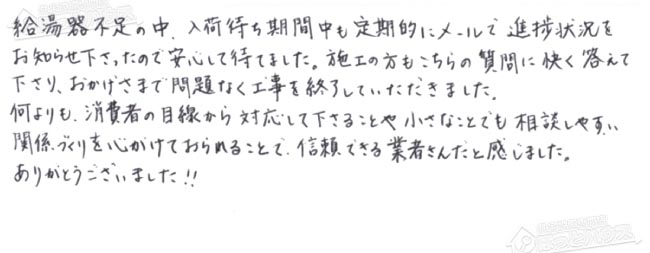 給湯器不足の中、入荷待ち期間中も定期的にメールで進捗状況を
お知らせ下さったので安心して待てました。施工の方もこちらの質問に快く答えて
下さり、おかげさまで問題なく工事を終了していただきました。
何よりも、消費者の目線から対応して下さることや小さなことでも相談しやすい
関係づくりを心がけておられることで、信頼できる業者さんだと感じました。
ありがとうございました!!